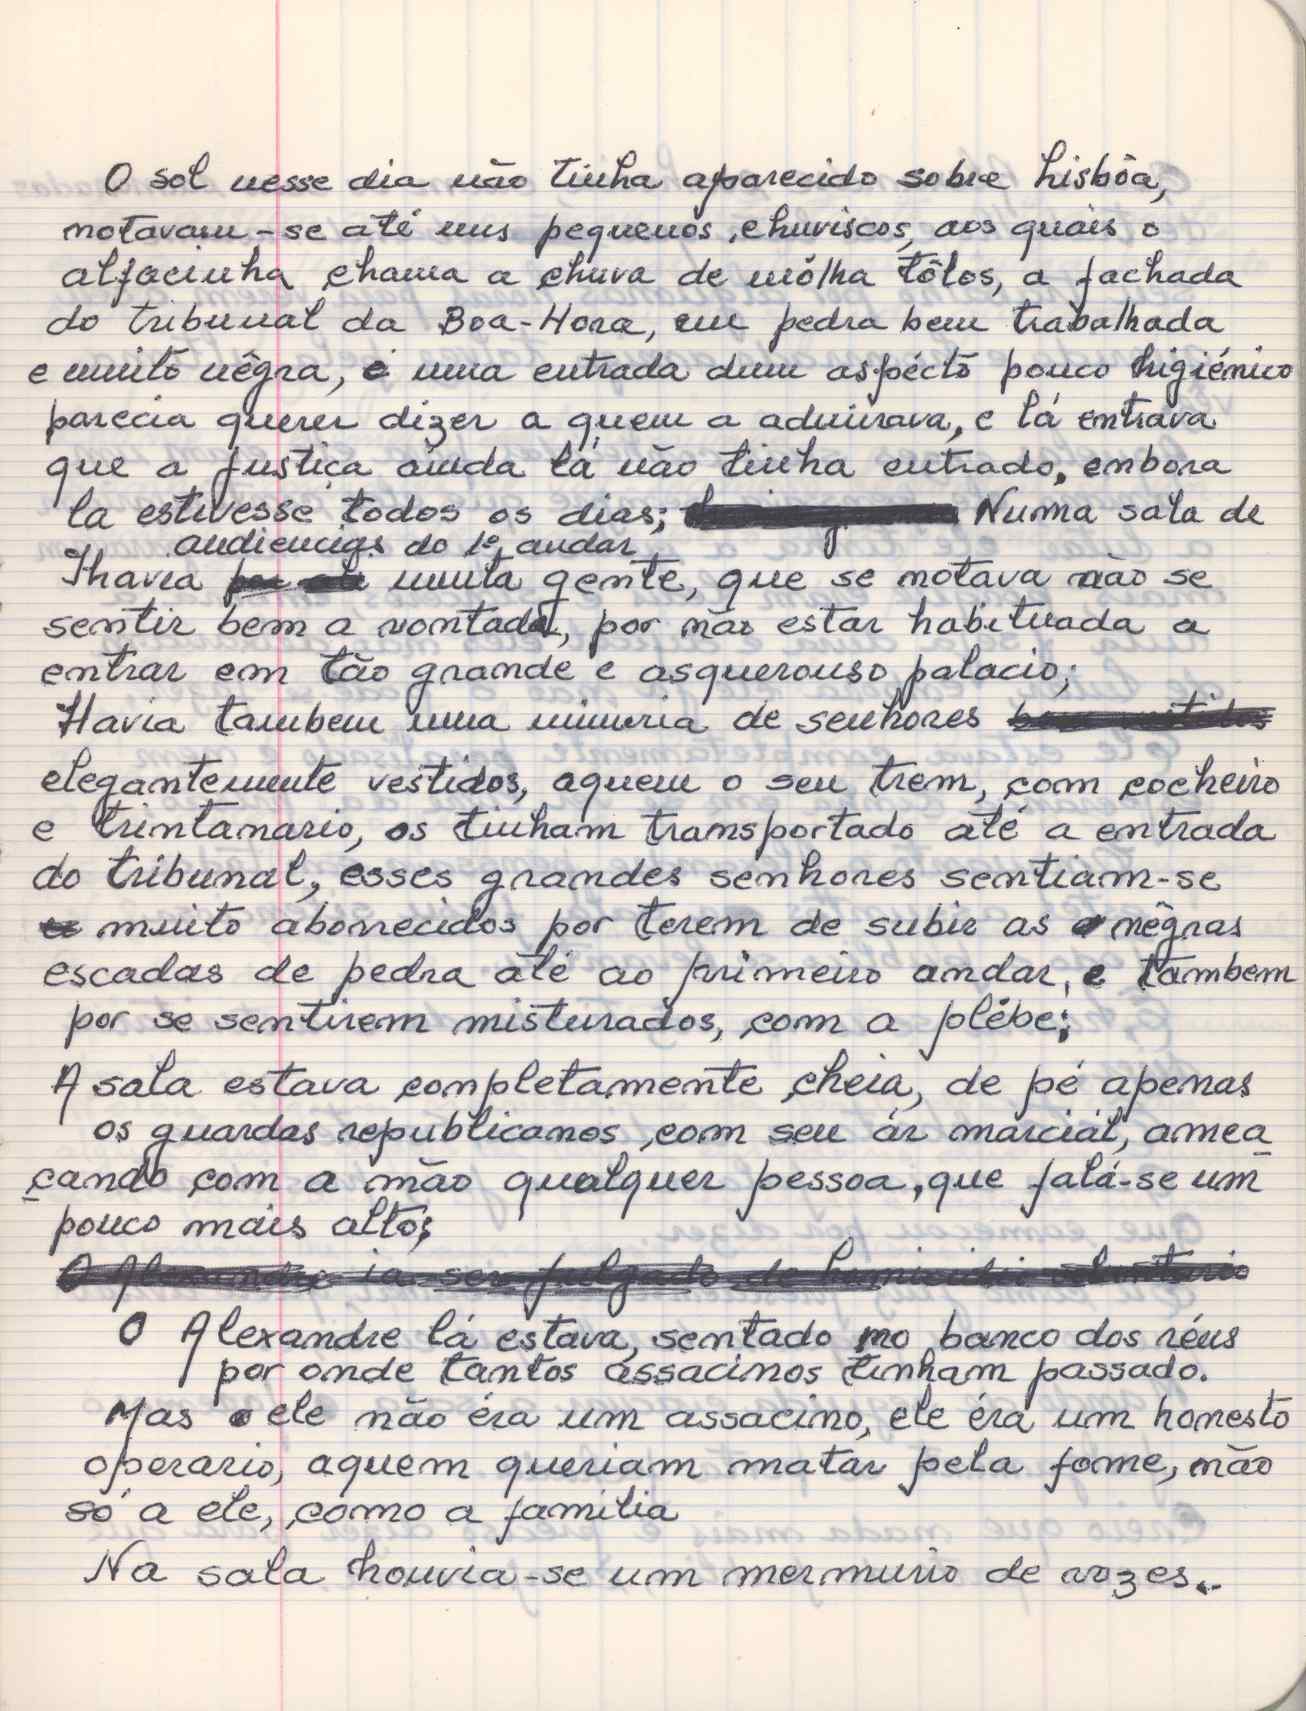 O sol nesse dia não tinha aparecido sobre Lisbôa,
notavam-se até uns pequenos chuviscos, aos quais o
alfacinha chama a chuva de mólha tôlos, a fachada
do tribunal da Boa-Hora, em pedra bem trabalhada
e muito nêgra, e uma entrada dum aspécto pouco higiénico
parecia querer dizer a quem a admirava, e lá entrava
que a justiça ainda lá não tinha entrado, embora
la estivesse todos os dias; Numa sala de
audiencias do 1º andar
havia muita gente, que se notava não se
sentir bem a vontade, por não estar habituada a
entrar em tão grande e asquerouso palacio;
Havia tambem uma mimoria de senhores bem vestidos
elegantemente vestidos, aquem o seu trem, com cocheiro
e trintanario, os tinham transportado até a entrada
do tribunal, esses grandes senhores sentiam-se
muito aborrecidos por terem de subir as nêgras
escadas de pedra até ao primeiro andar, e tambem
por se sentirem misturados, com a plébe;
A sala estava completamente cheia, de pé apenas
os guardas republicanos com seu ár marciál, amea
çando com a mão qualquer pessoa, que falá-se um
pouco mais alto;
O Alexandre ia ser julgado de homicidio voluntario
O Alexandre lá estava, sentado no banco dos réus
por onde tantos assacinos tinham passado.
Mas ele não éra um assacino, ele éra um honesto
operario, aquem queriam matar pela fome, não
só a ele, como a familia
Na sala houvia-se um mermurio de vozes..